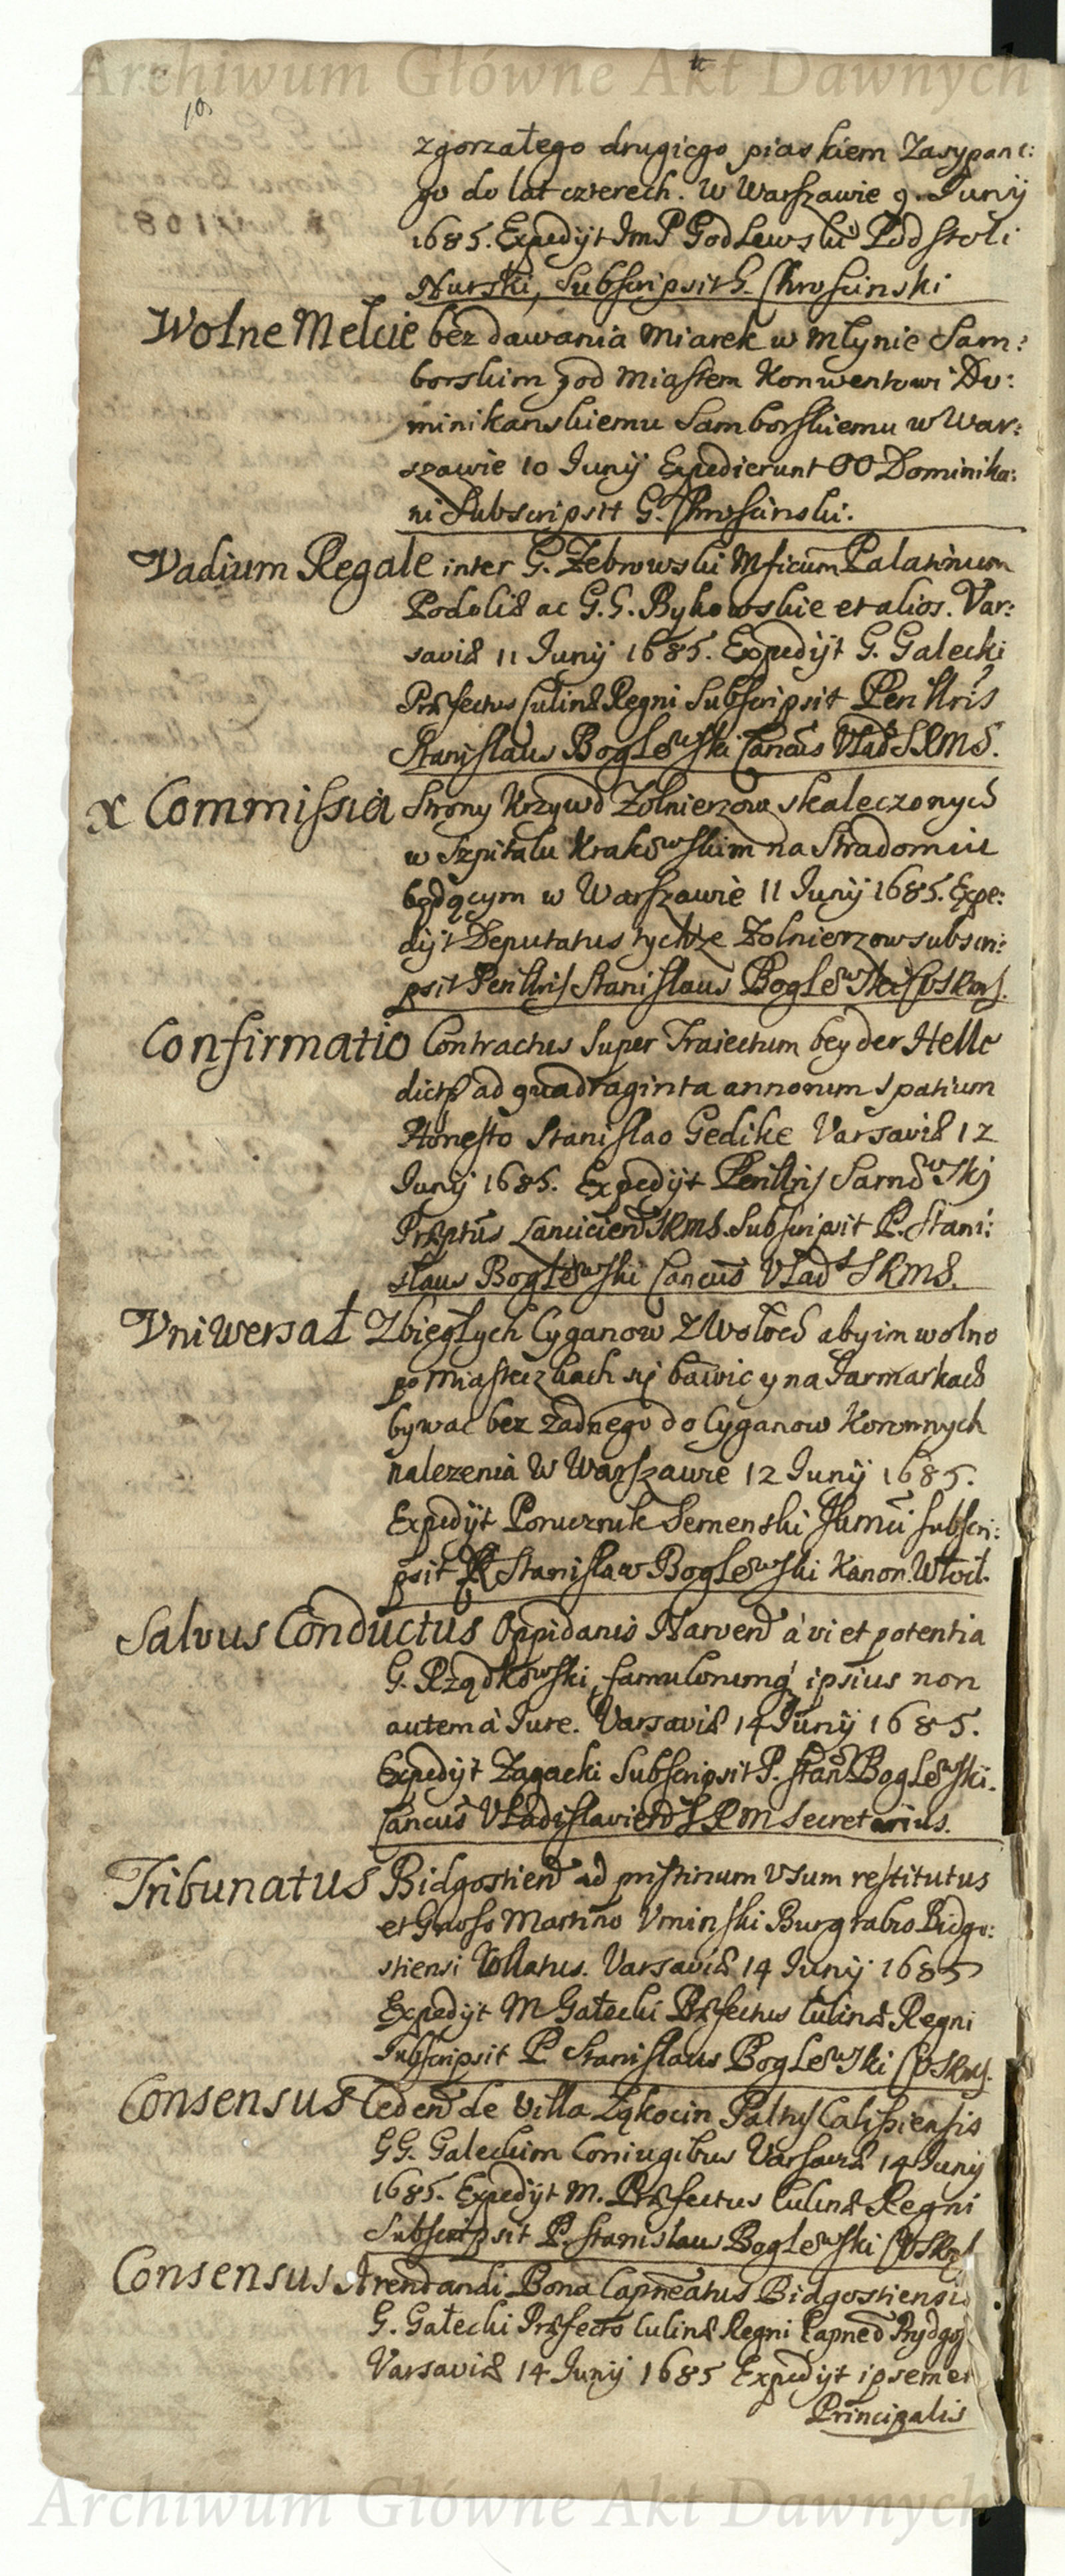 Archiwum Główne Akt Dawnych
zgorzałego drugiego piaskiem Zasypane:
go do lat czterech. W Warszawie 9. Junij
1685. Expedijt JmP Godlewski Podstoli
Nurski, Subscripsit G. Chrościnski
Wolne Melcie bez dawania Miarek w Młynie Sam:
borskim pod Miastem Konwentowi Do:
minikanskiemu Samborskiemu w War:
szawie 10 Junij Expedierunt OO Dominika:
ni Subscripsit G. Chrościnski.
Vadium Regale inter G. Żebrowski Mficum Palatinum
Podoliæ ac G.G. Bykowskie et alios. Var:
saviæ 11 Junij 1685. Expedijt G. Galecki
Præfectus Culinæ Regni Subscripsit Perillris
Stanislaus Boglewski Cancus Vlad SRMS.
x Commissia Strony Krzywd Żołnierzow skaleczonych
w Szpitalu Krakowskim na Stradomiu
będącym w Warszawie 11 Junij 1685. Expe:
dijt Deputatus tychże Żołnierzow subscri:
psit Perillris Stanislaus Boglewski CVSRMS.
Confirmatio Contractus Super Traiectum bey der Helle
dictum ad quadraginta annorum spatium
Honesto Stanislao Gedike Varsaviæ 12
Junij 1685. Expedijt Perillris Sarnowskj
Præptus Lancicien SRMS. Subscripsit P. Stani:
slaus Boglewski Cancus Vlad SRMS.
Vniwersał Zbiegłych Cyganow z Wołoch aby im wolno
po Miasteczkach się bawic y na Jarmarkach
bywac bez żadnego do Cyganow Koronnych
nalezenia W Warszawie 12 Junij 1685.
Expedijt Porucznik Semenski Subscri:
psit X Stanisław Boglewski Kanon. Włocł.
Salvus Conductus Oppidanis Narven à vi et potentia
G. Rządkowski, famulorumq ipsius non
autem à Jure. Varsaviæ 14 Junij 1685.
Expedijt Zagacki Subscripsit P. Stan Boglewski.
Cancus Vladislavien SRM Secretarius.
Tribunatus Bidgostien ad pristinum Vsum restitutus
et Gnoso Martino Vminski Burgrabio Bidgo:
stiensi Collatus. Varsaviæ 14 Junij 1685
Expedijt M Gałecki Præfectus Culinæ Regni
Subscripsit P. Stanislaus Boglewski CVSRMS.
Consensus Ceden de Villa Łąkocin Paltus Calissiensis
GG. Galeckim Coniugibus Varsaviæ 14 Junij
1685. Expedijt M. Præfectus Culinæ Regni
Subscripsit P. Stanislaus Boglewski CVSRMS
Consensus Arendandi Bona Capneatus Bidgostiensis
G. Gałecki Præfecto Culinæ Regni Capneo Bydgos
Varsaviæ 14 Junij 1685 Expedijt ipsemet
Principalis
Archiwum Główne Akt Dawnych